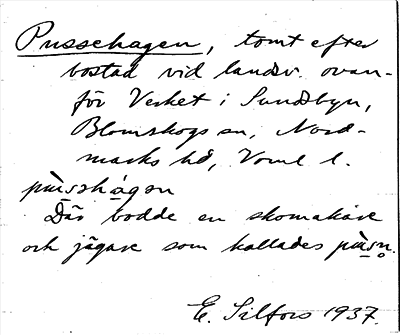 Pussehagen, tomt efter
bostad vid landsv. ovan-
för Verket i Sundsbyn,
Blomskogs sn, Nord-
marks hd, Vrml l.
pùsshàgen
Där bodde en skomakare
och jägare som kallades pùsn.
E. Silfors 1937.